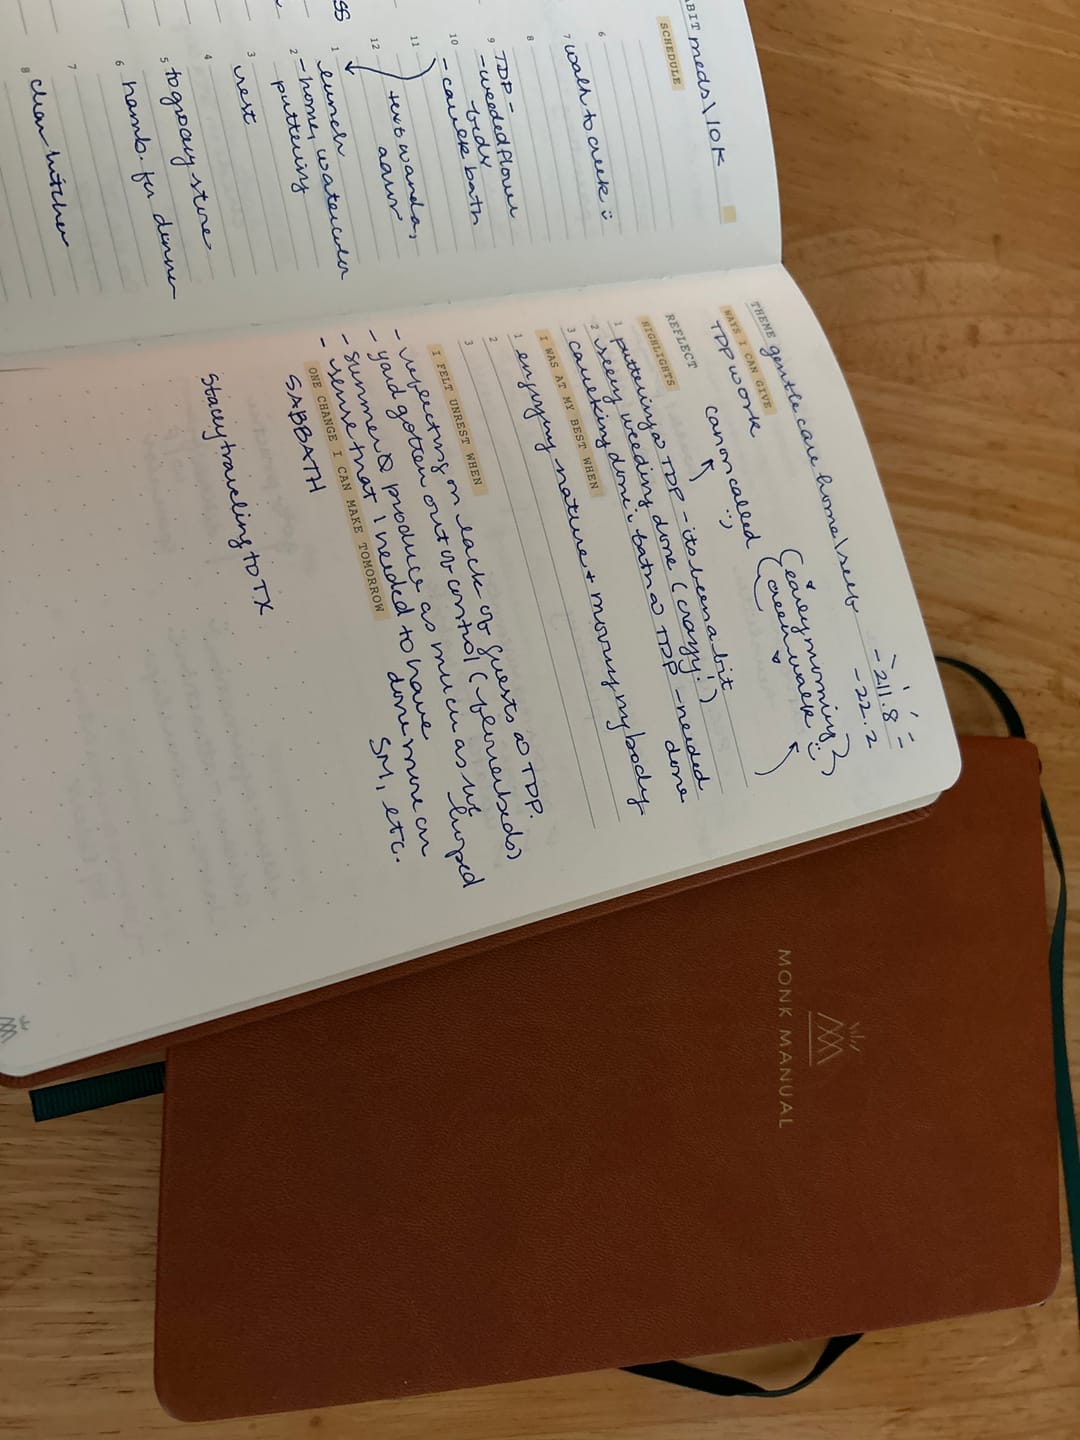 ABIT meds \ 10K
SCHEDULE
6
7 walk to creek
8
9 TDP -
- weeded flower
beds
10 - caulk bath
11
12 text wanda,
1 lunch
2 - home, watercolor
puttering
3 rest
4
5 to grocery store
6 hamb. for dinner
7
8 clean kitchen
ss
THEME gentle care home \ self
- 211.8
- 22.2
WAYS I CAN GIVE
TDP work
canon called :)
(early morning)
(creek walk :))
REFLECT
HIGHLIGHTS
1 puttering @ TDP - its been a bit
2 seeing weeding done (crazy!)
3 caulking done in bath @ TDP - needed
done
I WAS AT MY BEST WHEN
1 enjoying nature + moving my body
2
3
I FELT UNREST WHEN
- reflecting on lack of guests @ TDP.
- yard gotten out of control (flowerbeds)
- summer produce as much as we hoped
- sense that I needed to have
done more on
SM, etc.
ONE CHANGE I CAN MAKE TOMORROW
SABBATH
Stacey traveling to TX
MONK MANUAL